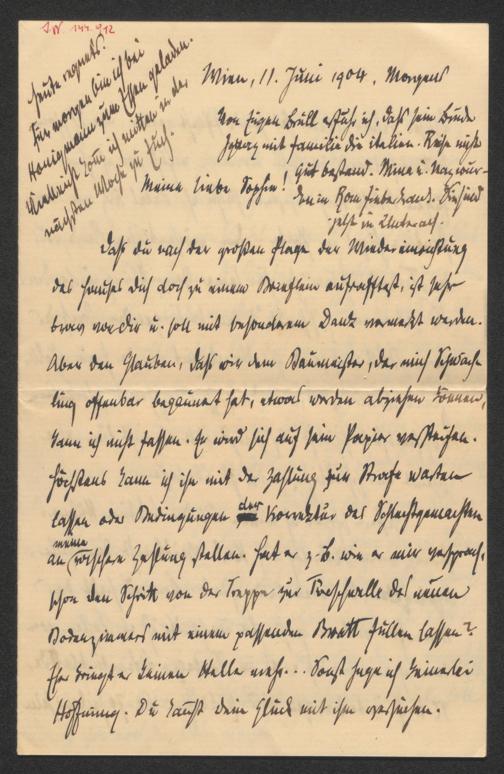 J.N. 144.912
Heute regnets.
Für morgen bin ich bei
Honigmann zum Essen geladen.
Vielleicht komm ich mitten in der
nächsten Woche zu Euch.
Wien, 11. Juni 1904, Morgens
Von Eugen Brüll erfuhr ich, daß sein Bruder
Ignaz mit Familie die italien. Reise nicht
gut bestand. Mina u. wur-
den in Rom fieberkrank. Sie sind
jetzt in Unterach.
Meine liebe Sophie!
Daß du nach der großen Plage der Wiedereinrichtung
des Hauses Dich doch zu einem Brieflein aufrafftest, ist sehr
brav von Dir u. soll mit besonderem Dank vermerkt werden.
Aber den Glauben, daß wir dem Baumeister, der mich Schwäch-
ling offenbar begaunert hat, etwas werden abziehen können,
kann ich nicht fassen. Er wird sich auf sein Papier versteifen.
Höchstens kann ich ihn mit der Zahlung zur Strafe warten
lassen oder Bedingungen der Korrektur des Schlechtgemachten
an meine raschere Zahlung stellen. Hat er z. B. wie er mir versprach,
schon den Schritt von der Treppe zur Türschwelle des neuen
Bodenzimmers mit einem passenden Brett füllen lassen?
Er kriegt er keinen Heller mehr... Sonst hege ich keinerlei
Hoffnung. Du kannst dein Glück mit ihm versuchen.